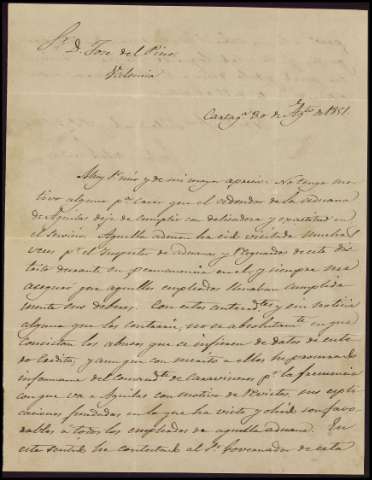 Sr. D. Jose del Pino
Valencia
Cartaga. 30 de Agto. de 1851.
Muy Sr. mio y de mi mayor aprecio: No tengo mo-
tivo alguno pa. creer que el vedor de la aduana
de Aguilas deje de cumplir con delicadeza y exactitud en
el servicio. Aquella aduana ha sido visitada muchas
veces pr. el inspector de aduanas y resguardos de este dis-
trito durante su permanencia en el, y siempre me
aseguró que aquellos empleados llenaban cumplida
mente sus deberes. Con estos anteced.tes y sin noticia
alguna que los contraríe, no se absolutamte. en que
consistan los abusos que se infieren de datos de ente-
ro credito, y aunque con merito a ellos he procurado
informarme del comandte. de carabineros pr. la frecuencia
con que va a Aguilas con motivo de Revistas, sus expli-
caciones fundadas en lo que ha visto y oido son favo-
rables a todos los empleados de aquella aduana. En
este sentido he contestado al Sr. Governador de esta